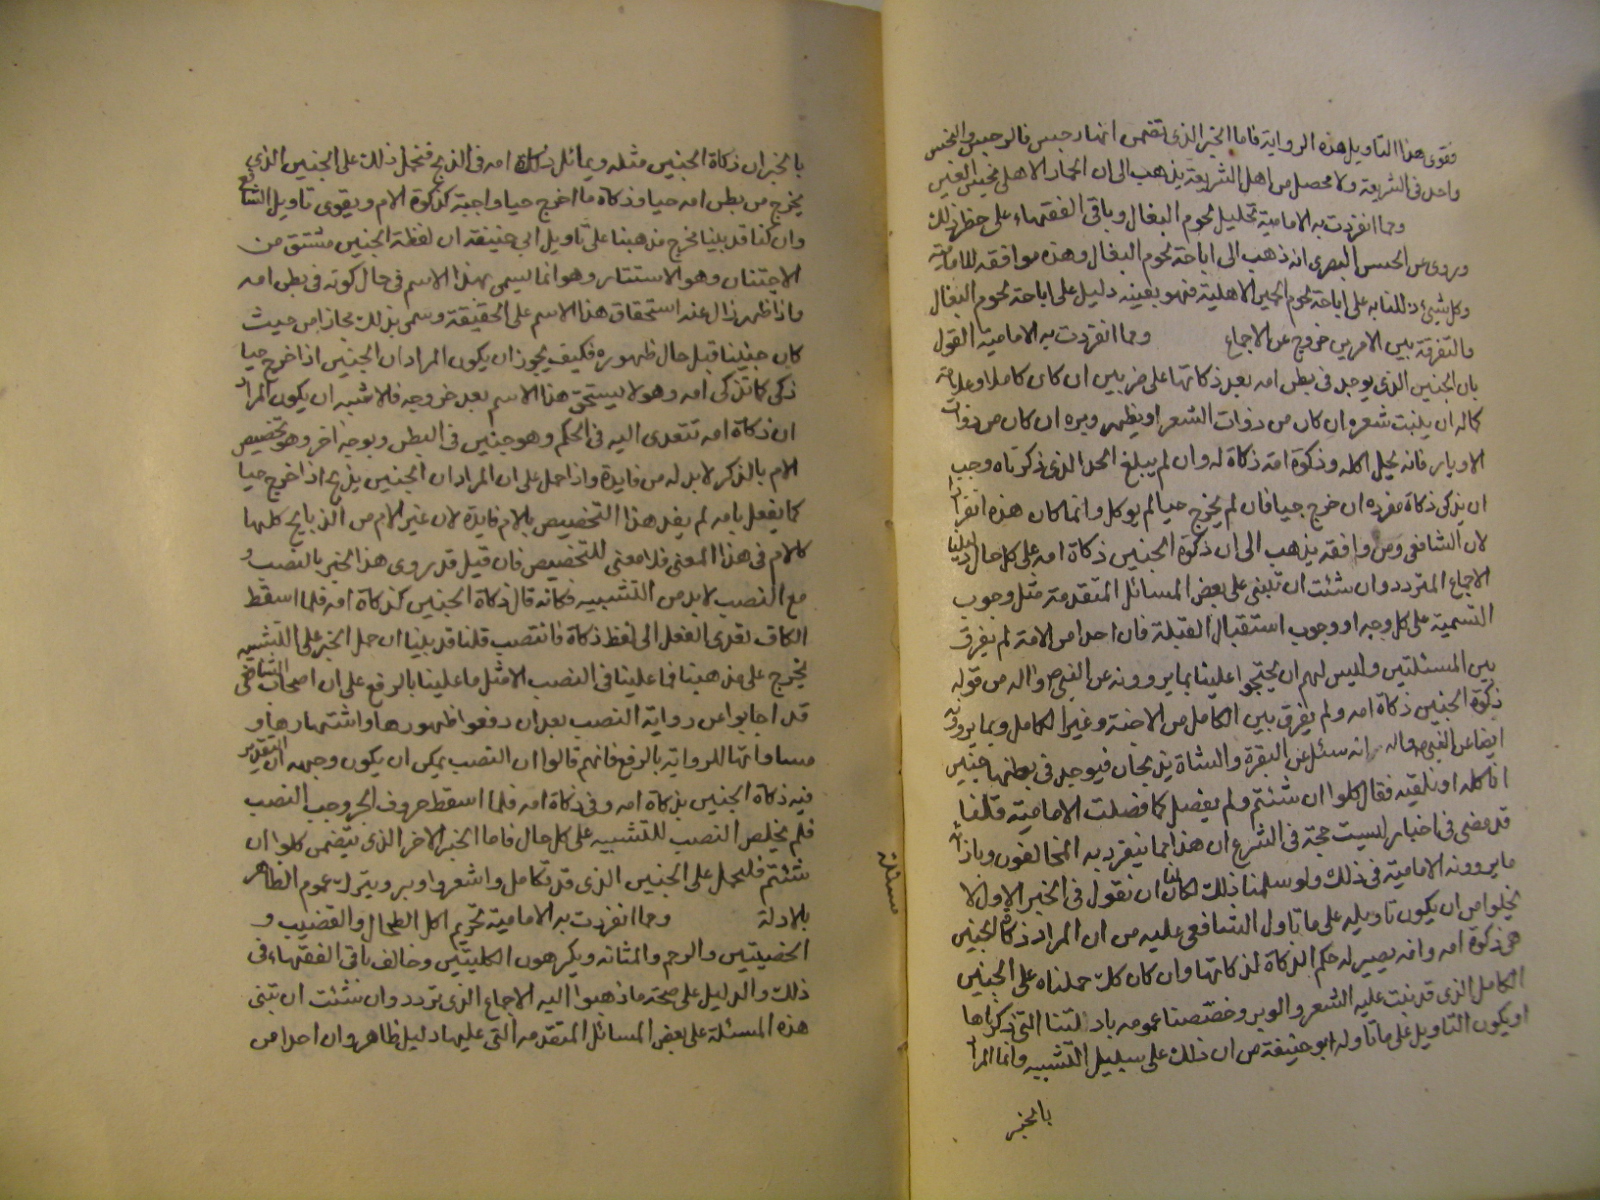 فقوى هذا التاويل هذه الرواية فاما الخبر الذى تضمن انها رجس فالرجس والنجس
واحد فى الشريعة ولا محصل من اهل الشريعة يذهب الى ان الحمار الاهلى نجس العين
ومما انفردت به الامامية تحليل لحوم البغال وباقى الفقهاء على حظر ذلك
وروى عن الحسن البصرى انه ذهب الى اباحة لحوم البغال وهذه موافقة للامامية
وكل شيء دللنا به على اباحة لحوم الحمير الاهلية فهو بعينه دليل على اباحة لحوم البغال
والتفرقة بين الامرين خروج عن الاجماع ومما انفردت به الامامية القول
بان الجنين الذى يوجد فى بطن امه بعد ذكاتها على ضربين ان كان كاملا وعلامة
كماله ان ينبت شعره ان كان من ذوات الشعر او يظهر وبره ان كان من ذوات
الاوبار فانه يحل اكله وذكوة امه ذكاة له وان لم يبلغ الحد الذى ذكرناه وجب
ان يذكى ذكاة مفرده ان خرج حيا فان لم يخرج حيا لم يوكل وانما كان هذه انفرادا
لان الشافعى ومن وافقه يذهب الى ان ذكوة الجنين ذكاة امه على كل حال دليلنا
الاجماع المتردد وان شئت ان تبنى على بعض المسائل المتقدمة مثل وجوب
التسمية على كل وجه او وجوب استقبال القبلة فان احدا من الامة لم يفرق
بين المسئلتين وليس لهم ان يحتجوا علينا بما يروونه عن النبى واله من قوله
ذكوة الجنين ذكاة امه ولم يفرق بين الكامل من الاجنة وغير الكامل وبما يروونه
ايضا عن النبى واله انه سئل عن البقرة والشاة يذبحان فيوجد فى بطنها جنين
اناكله او نلقيه فقال كلوا ان شئتم ولم يفصل كما فصلت الامامية قلنا
قد مضى فى اخبار ليست حجة فى الشرع ان هذا مما ينفرد به المخالفون وبازائه
ما يروونه الامامية فى ذلك ولو سلمنا ذلك لكان لنا ان نقول فى الخبر الاول لا
يخلوا من ان يكون تاويله على ما تاول الشافعى عليه من ان المراد ذكاة الجنين
هى ذكوة امه وانه يصير له حكم الذكاة لذكاتها وان كان كك حملناه على الجنين
الكامل الذى قد نبت عليه الشعر والوبر وخصصنا عمومه بادلتنا التى ذكرناها
او يكون التاويل على ما تاوله ابو حنيفة من ان ذلك على سبيل التشبيه وانما المراد
بالخبر
بالخبر ان ذكاة الجنين مثله ويماثل ذكاة امه فى الذبح فنحمل ذلك على الجنين الذى
يخرج من بطن امه حيا وذكاة ما اخرج حيا واجبة كذكوة الام ويقوى تاويل الشافعى
وان كنا قد بينا نخرج مذهبنا على تاويل ابى حنيفة ان لفظة الجنين مشتق من
الاجتنان وهو الاستتار وهو انما يسمى بهذا الاسم فى حال كونه فى بطن امه
واذا ظهر زال عنه استحقاق هذا الاسم على الحقيقة وسمى بذلك مجازا من حيث
كان جنينا قبل حال ظهوره فكيف يجوز ان يكون المراد ان الجنين اذا خرج حيا
ذكى كما تذكى امه وهو لا يستحق هذا الاسم بعد خروجه فالاشبه ان يكون المراد
ان ذكاة امه تتعدى اليه فى الحكم وهو جنين فى البطن وبوجه اخر وهو تخصيص
الام بالذكر لابد له من فايدة واذا حمل على ان المراد ان الجنين يذبح اذا خرج حيا
كما يفعل بامه لم يفد هذا التخصيص بالام فايدة لان غير الام من الذبايح كلها
كالام فى هذا المعنى فلا معنى للتخصيص فان قيل قد يروى هذا الخبر بالنصب و
مع النصب لابد من التشبيه فكانه قال ذكاة الجنين كذكاة امه فلما اسقط
الكاف تعدى الفعل الى لفظ ذكاة فانتصب قلنا قد بينا ان حمل الخبر على التشبيه
يخرج على مذهبنا فما علينا فى النصب الا مثل ما علينا بالرفع على ان اصحاب الشافعى
قد اجابوا عن رواية النصب بعد ان دفعوا ظهورها واشتهارها و
مساواتها للرواية بالرفع فانهم قالوا ان النصب يمكن ان يكون وجهه ان التقدير
فيه ذكاة الجنين بذكاة امه وفى ذكاة امه فلما اسقط حروف الجر وجب النصب
فلم يخلص النصب للتشبيه على كل حال فاما الخبر الاخر الذى يتضمن كلوا ان
شئتم فليحمل على الجنين الذى قد تكامل واشعر واوبر ويترك عموم الظاهر
بالادلة ومما انفردت به الامامية تحريم اكل الطحال والقضيب و
الخصيتين والرحم والمثانه ويكرهون الكليتين وخالف باقى الفقهاء فى
ذلك والدليل على صحة ما ذهبوا اليه الاجماع الذى تردد وان شئت ان تبنى
هذه المسئلة على بعض المسائل المتقدمه التى عليها دليل ظاهر وان احدا من
مسئلة